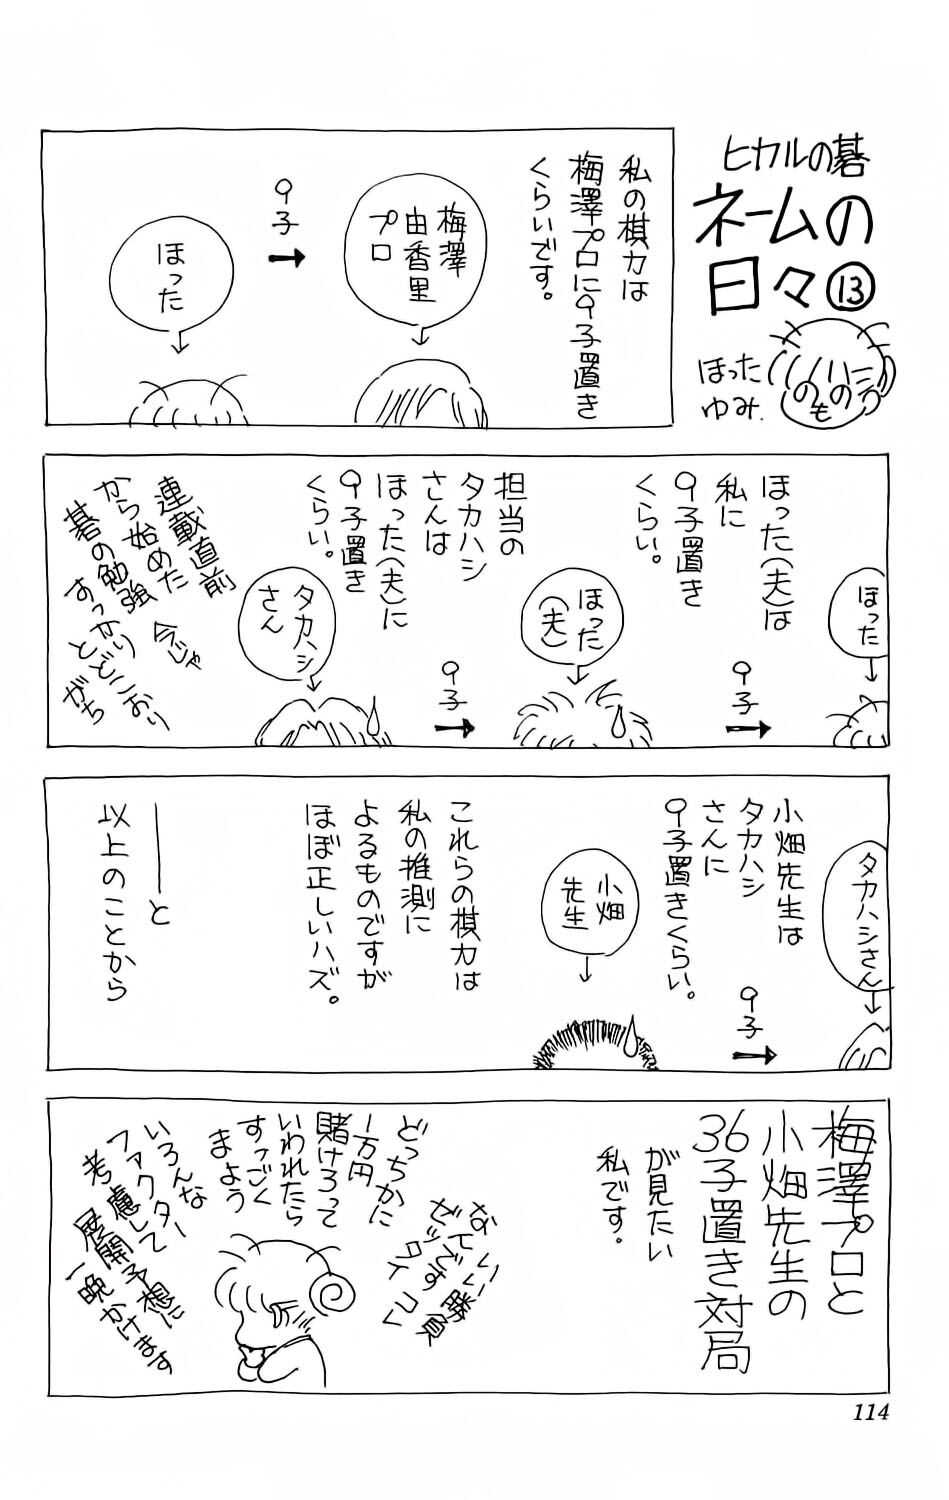 ヒカルの碁
ネームの
日々⑬
ほった
ゆみ.
へのへのもへの
私の棋力は
梅澤プロに9子置き
くらいです。
梅澤
由香里
プロ
9子
ほった
ほった
ほった(夫)は
私に
9子置き
くらい。
9子
ほった
(夫)
担当の
タカハシ
さんは
ほった(夫)に
9子置き
くらい。
9子
タカハシ
さん
連載直前
から始めた
碁の勉強
今じゃ
すっかり
とどこおり
がち
タカハシさん
小畑先生は
タカハシ
さんに
9子置きくらい。
9子
小畑
先生
これらの棋力は
私の推測に
よるものですが
ほぼ正しいハズ。
――と
以上のことから
梅澤プロと
小畑先生の
36子置き対局
が見たい
私です。
いい勝負
なんです
ゼッタイコレ
どっちかに
1万円
賭けろって
いわれたら
すっごく
まよう
いろんな
ファクター
考慮して
展開予想に
一晩かけます
114